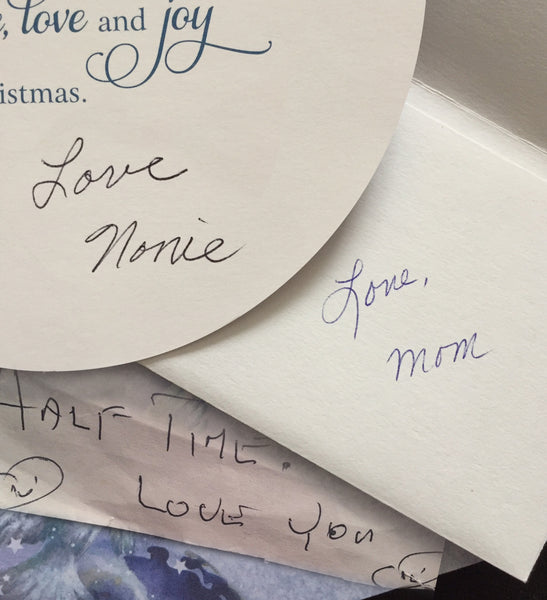 love and joy
istmas.
Love
Nonie
Love,
mom
HALF TIME.
LOVE YOU